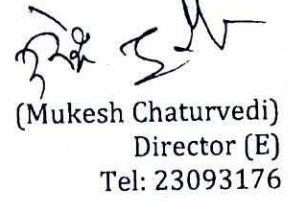 (Mukesh Chaturvedi)
Director (E)
Tel: 23093176